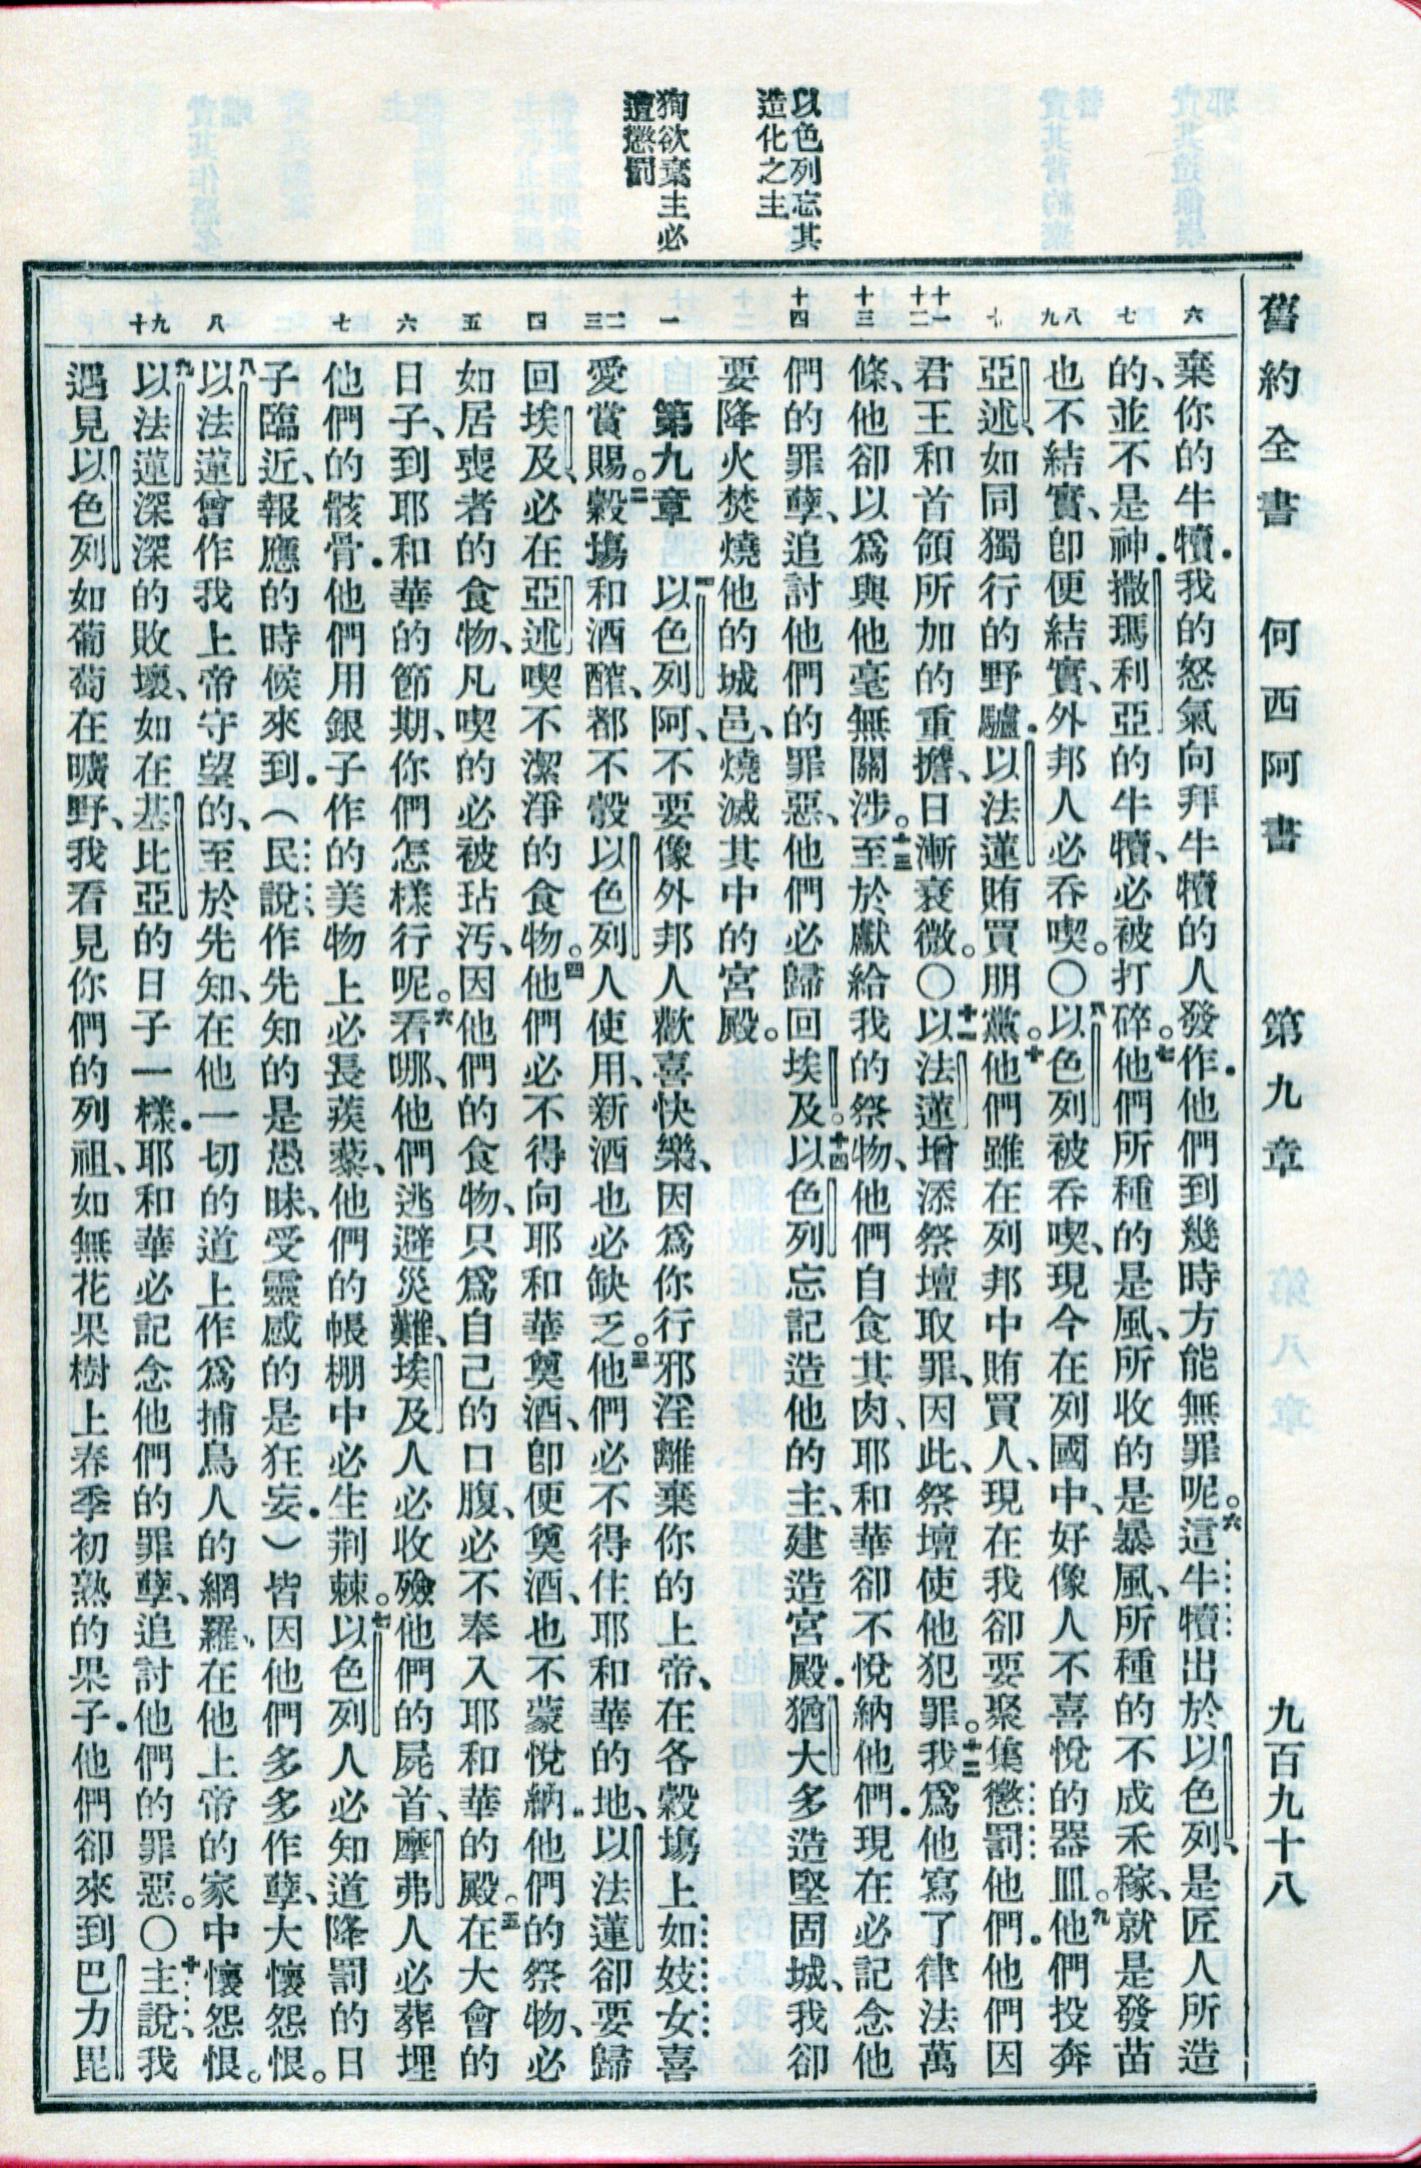 舊約全書 何西阿書 第九章 九百九十八
以色列忘其
造化之主
狥欲棄主必
遭懲罰
六
七
八
九
十
十一
十二
十三
十四
一
二
三
四
五
六
七
八
九
十
棄你的牛犢．我的怒氣向拜牛犢的人發作．他們到幾時方能無罪呢。六這牛犢出於以色列、是匠人所造
的、並不是神．撒瑪利亞的牛犢、必被打碎。七他們所種的是風、所收的是暴風、所種的不成禾稼、就是發苗
也不結實、卽便結實、外邦人必吞喫。〇八以色列被吞喫、現今在列國中、好像人不喜悅的器皿。九他們投奔
亞述、如同獨行的野驢．以法蓮賄買朋黨。十他們雖在列邦中賄買人、現在我卻要聚集懲罰他們．他們因
君王和首領所加的重擔、日漸衰微。〇十一以法蓮增添祭壇取罪、因此、祭壇使他犯罪。十二我爲他寫了律法萬
條、他卻以爲與他毫無關涉。十三至於獻給我的祭物、他們自食其肉、耶和華卻不悅納他們．現在必記念他
們的罪孽、追討他們的罪惡、他們必歸回埃及。十四以色列忘記造他的主、建造宮殿．猶大多造堅固城、我卻
要降火焚燒他的城邑、燒滅其中的宮殿。
第九章 一以色列阿、不要像外邦人歡喜快樂、因爲你行邪淫離棄你的上帝、在各穀塲上如妓女喜
愛賞賜。二穀塲和酒醡、都不彀以色列人使用、新酒也必缺乏。三他們必不得住耶和華的地、以法蓮卻要歸
回埃及、必在亞述喫不潔淨的食物。四他們必不得向耶和華奠酒、卽便奠酒、也不蒙悅納．他們的祭物、必
如居喪者的食物、凡喫的必被玷汚、因他們的食物、只爲自己的口腹、必不奉入耶和華的殿。五在大會的
日子、到耶和華的節期、你們怎樣行呢。六看哪、他們逃避災難、埃及人必收殮他們的屍首、摩弗人必葬埋
他們的骸骨．他們用銀子作的美物上必長蒺藜、他們的帳棚中必生荆棘。七以色列人必知道降罰的日
子臨近、報應的時候來到．（民說、作先知的是愚昧、受靈感的是狂妄．）皆因他們多多作孽、大懷怨恨。
八以法蓮曾作我上帝守望的、至於先知、在他一切的道上作爲捕鳥人的網羅、在他上帝的家中懷怨恨。
九以法蓮深深的敗壞、如在基比亞的日子一樣．耶和華必記念他們的罪孽、追討他們的罪惡。〇十主說、我
遇見以色列如葡萄在曠野、我看見你們的列祖、如無花果樹上春季初熟的果子．他們卻來到巴力毘